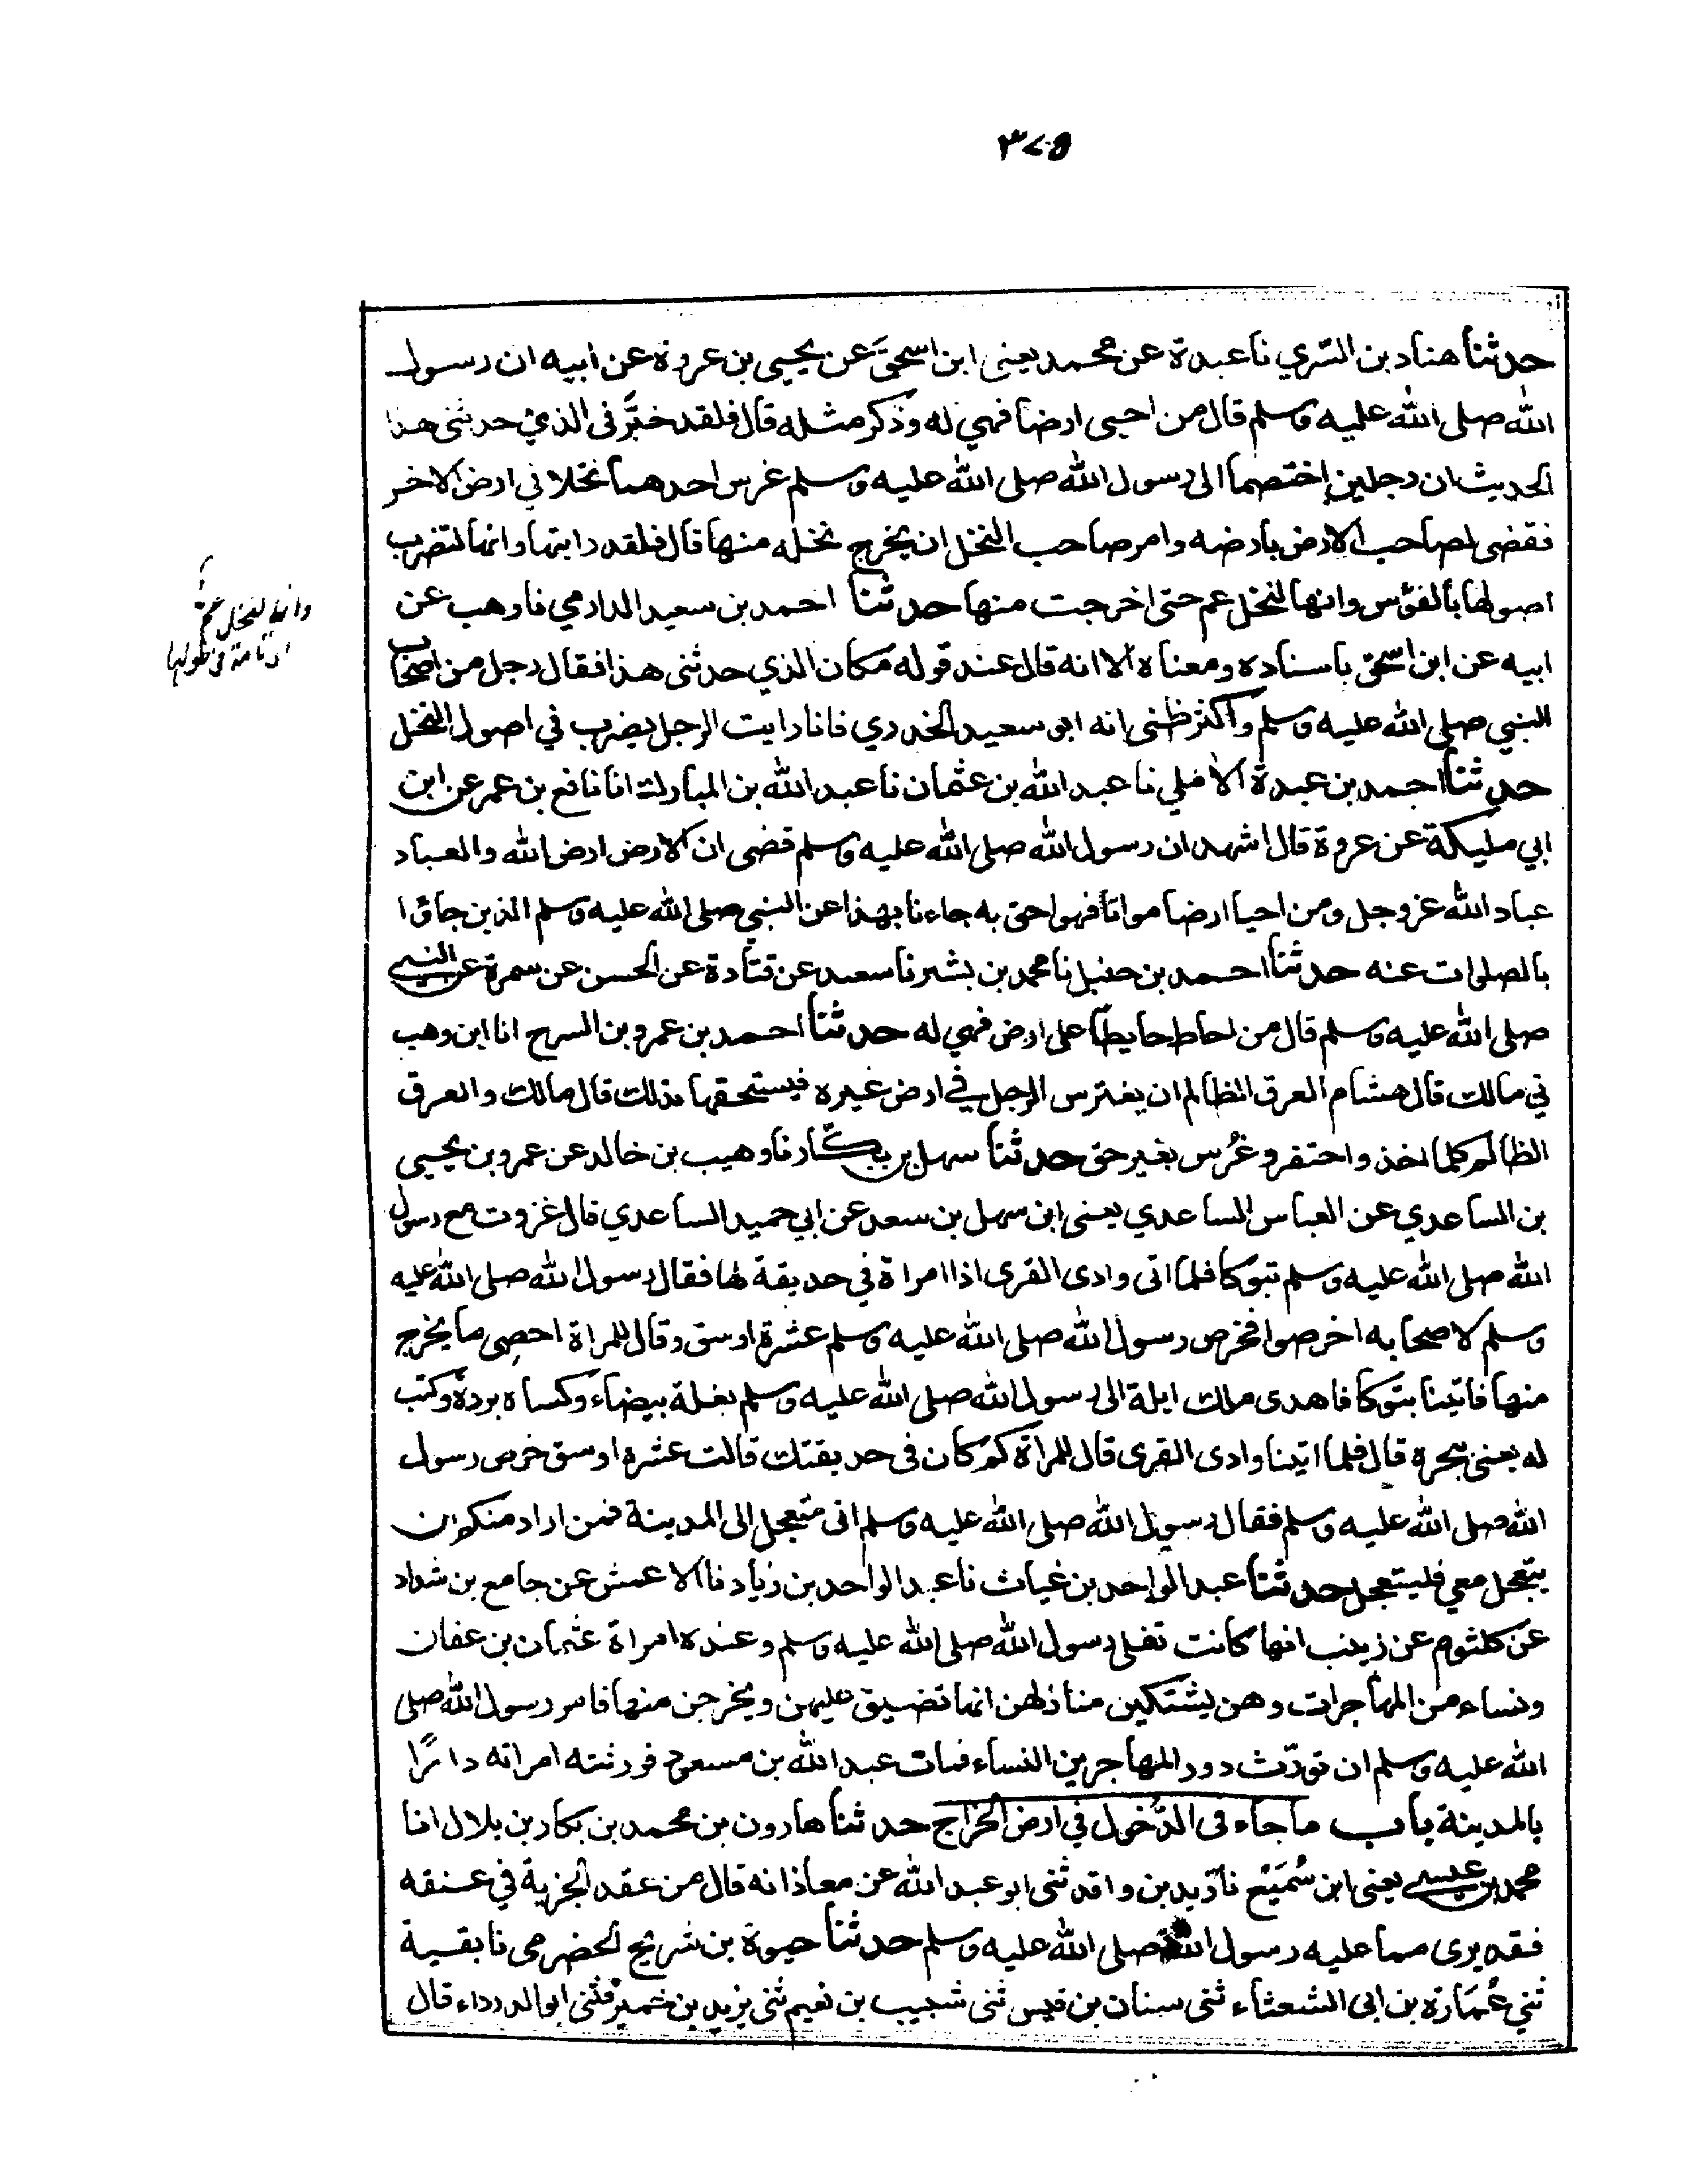 ٣٧٥
حدثنا هناد بن السري نا عبدة عن محمد يعني ابن اسحق عن يحيى بن عروة عن ابيه ان رسول
الله صلى الله عليه وسلم قال من احيى ارضا فهي له وذكر مثله قال فلقد خبَّرنى الذي حدثنى هذا
الحديث ان رجلين اختصما الى رسول الله صلى الله عليه وسلم غرس احدهما نخلا في ارض الاخر
فقضى لصاحب الارض بارضه وامر صاحب النخل ان يخرج نخله منها قال فلقد رايتها وانها لتضرب
اصولها بالفؤس وانها لنخل عم حتى اخرجت منها حدثنا احمد بن سعيد الدارمي نا وهب عن
وانها لنخل عم
اى تامة فى طولها
ابيه عن ابن اسحق باسناده ومعناه الا انه قال عند قوله مكان الذي حدثنى هذا فقال رجل من اصحاب
النبي صلى الله عليه وسلم واكثر ظنى انه ابو سعيد الخدري فانا رايت الرجل يضرب في اصول النخل
حدثنا احمد بن عبدة الاملي نا عبد الله بن عثمان نا عبد الله بن المبارك انا نافع بن عمر عن ابن
ابي مليكة عن عروة قال اشهد ان رسول الله صلى الله عليه وسلم قضى ان الارض ارض الله والعباد
عباد الله عز وجل ومن احيا ارضا مواتا فهو احق به جاءنا بهذا عن النبي صلى الله عليه وسلم الذين جاؤا
بالصلوات عنه حدثنا احمد بن حنبل نا محمد بن بشر نا سعيد عن قتادة عن الحسن عن سمرة عن النبي
صلى الله عليه وسلم قال من احاط حايطا على ارض فهي له حدثنا احمد بن عمرو بن السرح انا ابن وهب
ني مالك قال هشام العرق الظالم ان يغترس الرجل في ارض غيره فيستحقها بذلك قال مالك والعرق
الظالم كلما اخذ واحتفر وغُرس بغير حق حدثنا سهل بن بكّار نا وهيب بن خالد عن عمرو بن يحيى
بن الساعدي عن العباس الساعدي يعنى ابن سهل بن سعد عن ابي حميد الساعدي قال غزوت مع رسول
الله صلى الله عليه وسلم تبوكا فلما اتى وادى القرى اذا امراة في حديقة لها فقال رسول الله صلى الله عليه
وسلم لاصحابه اخرصوا فخرص رسول الله صلى الله عليه وسلم عشرة اوسق وقال للمراة احصِى ما يخرج
منها فاتينا بتوكا فاهدى ملك ايلة الى رسول الله صلى الله عليه وسلم بغلة بيضاء وكساه بردة وكتب
له يعنى ببحره قال فلما اتينا وادى القرى قال للمراة كم كان فى حديقتك قالت عشرة اوسق خرص رسول
الله صلى الله عليه وسلم فقال رسول الله صلى الله عليه وسلم انى متعجل الى المدينة فمن اراد منكم ان
يتعجل معي فليتعجل حدثنا عبد الواحد بن غياث نا عبد الواحد بن زياد نا الاعمش عن جامع بن شداد
عن كلثوم عن زينب انها كانت تفلى رسول الله صلى الله عليه وسلم وعنده امراة عثمان بن عفان
ونساء من المهاجرات وهن يشتكين منازلهن انها تضيق عليهن ويخرجن منها فامر رسول الله صلى
الله عليه وسلم ان تورّث دور المهاجرين النساء فمات عبد الله بن مسعود فورثته امراته دارًا
بالمدينة باب ما جاء فى الدُّخول في ارض الخراج حدثنا هارون بن محمد بن بكار بن بلال انا
محمد بن عيسى يعنى ابن سُمَيْع نا زيد بن واقد ثنى ابو عبد الله عن معاذ انه قال من عقد الجزية في عنقه
فقد برى مما عليه رسول الله صلى الله عليه وسلم حدثنا حيوة بن شريح الحضرمي نا بقية
ثني عُمَارة بن ابى الشعثاء ثنى سنان بن قيس ثنى شبيب بن نعيم ثنى يزيد بن خمير ثنى ابو الدرداء قال